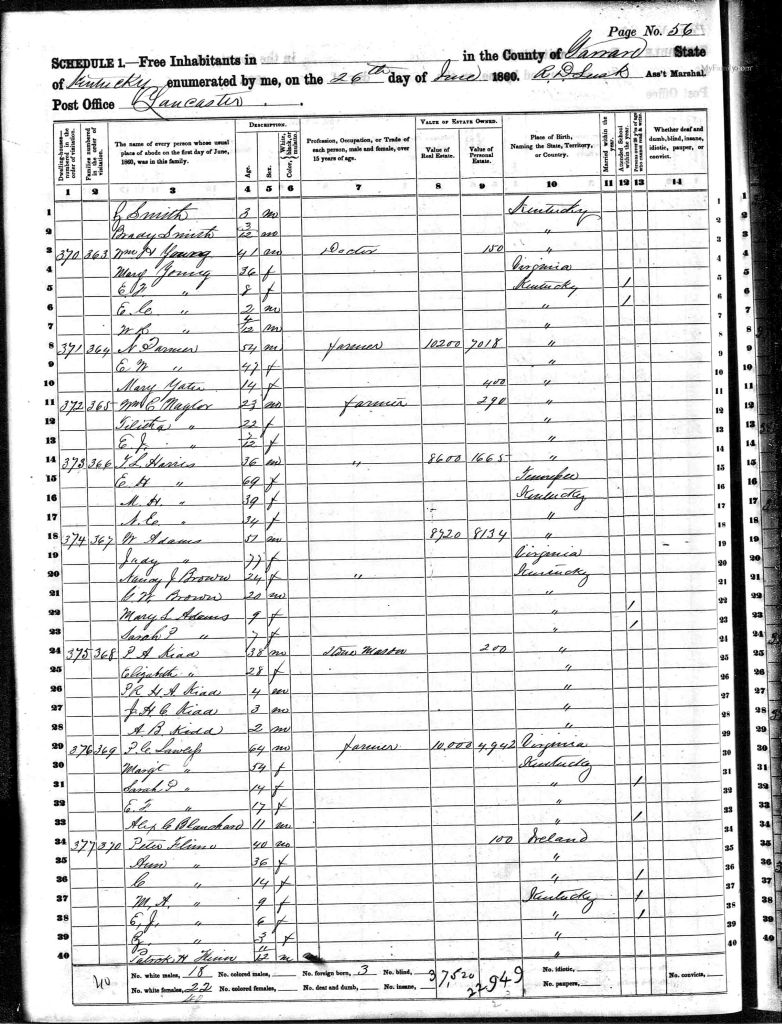 Page No. 56
SCHEDULE 1.—Free Inhabitants in in the County of Garrard State
MyFamily.com
of Kentucky enumerated by me, on the 26th day of June 1860. R D Lusk Ass't Marshal.
Post Office Lancaster
Dwelling-houses—numbered in the order of visitation.
Families numbered in the order of visitation.
The name of every person whose usual place of abode on the first day of June, 1860, was in this family.
DESCRIPTION.
Age.
Sex.
Color, White, black, or mulatto.
Profession, Occupation, or Trade of each person, male and female, over 15 years of age.
VALUE OF ESTATE OWNED.
Value of Real Estate.
Value of Personal Estate.
Place of Birth, Naming the State, Territory, or Country.
Married within the year.
Attended School within the year.
Persons over 20 y'rs of age who cannot read & write.
Whether deaf and dumb, blind, insane, idiotic, pauper, or convict.
1 2 3 4 5 6 7 8 9 10 11 12 13 14
1 Smith 3 m Kentucky 1
2 Brady Smith 3/12 m " 2
3 370 363 Wm H Young 41 m Doctor 150 " 3
4 Mary Young 36 f Virginia 4
5 E. F " 8 f Kentucky 1 5
6 E. C. " 2 m " 1 6
7 W L " 4/12 m " 7
8 371 364 N Farmer 54 m farmer 10200 7018 " 8
9 E W " 47 f " 9
10 Mary Yater 14 f 400 " 10
11 372 365 Wm E Naylor 23 m farmer 290 " 11
12 Felitha " 22 f " 12
13 E. J. " /12 f " 13
14 373 366 T. L. Harris 36 m " 8600 1665 " 14
15 E. H " 69 f Tennessee 15
16 M. H. " 39 f Kentucky 16
17 N. E. " 34 f " 17
18 374 367 W Adams 51 m 8720 8134 " 18
19 Judy " 77 f Virginia 19
20 Nancy J Brown 24 f " Kentucky 20
21 W Brown 20 m " 21
22 Mary L Adams 9 f " 1 22
23 Sarah P " 7 f " 1 23
24 375 368 P A Kidd 38 m Stone Mason 200 " 24
25 Elizabeth " 28 f " 25
26 H A Kidd 4 m " 26
27 J H C Kidd 3 m " 27
28 A B Kidd 2 m " 28
29 376 369 P. C Lawless 64 m farmer 10,000 4942 Virginia 29
30 Margt " 54 f Kentucky 30
31 Sarah P " 14 f " 1 31
32 E. F " 17 f " 32
33 Alex C Blanchard 11 m " 1 33
34 377 370 Peter Flinn 40 m 100 Ireland 34
35 Ann " 36 f " 35
36 C " 14 f " 1 36
37 M. A. " 9 f Kentucky 1 37
38 E, J, " 6 f " 1 38
39 " 3 f " 39
40 Patrick H Flinn 11/12 m " 40
40 No. white males, 18 No. colored males, No. foreign born, 3 No. blind, 37,520 22949 No. idiotic, No. convicts,
No. white females, 22 No. colored females, No. deaf and dumb, No. insane, No. paupers,